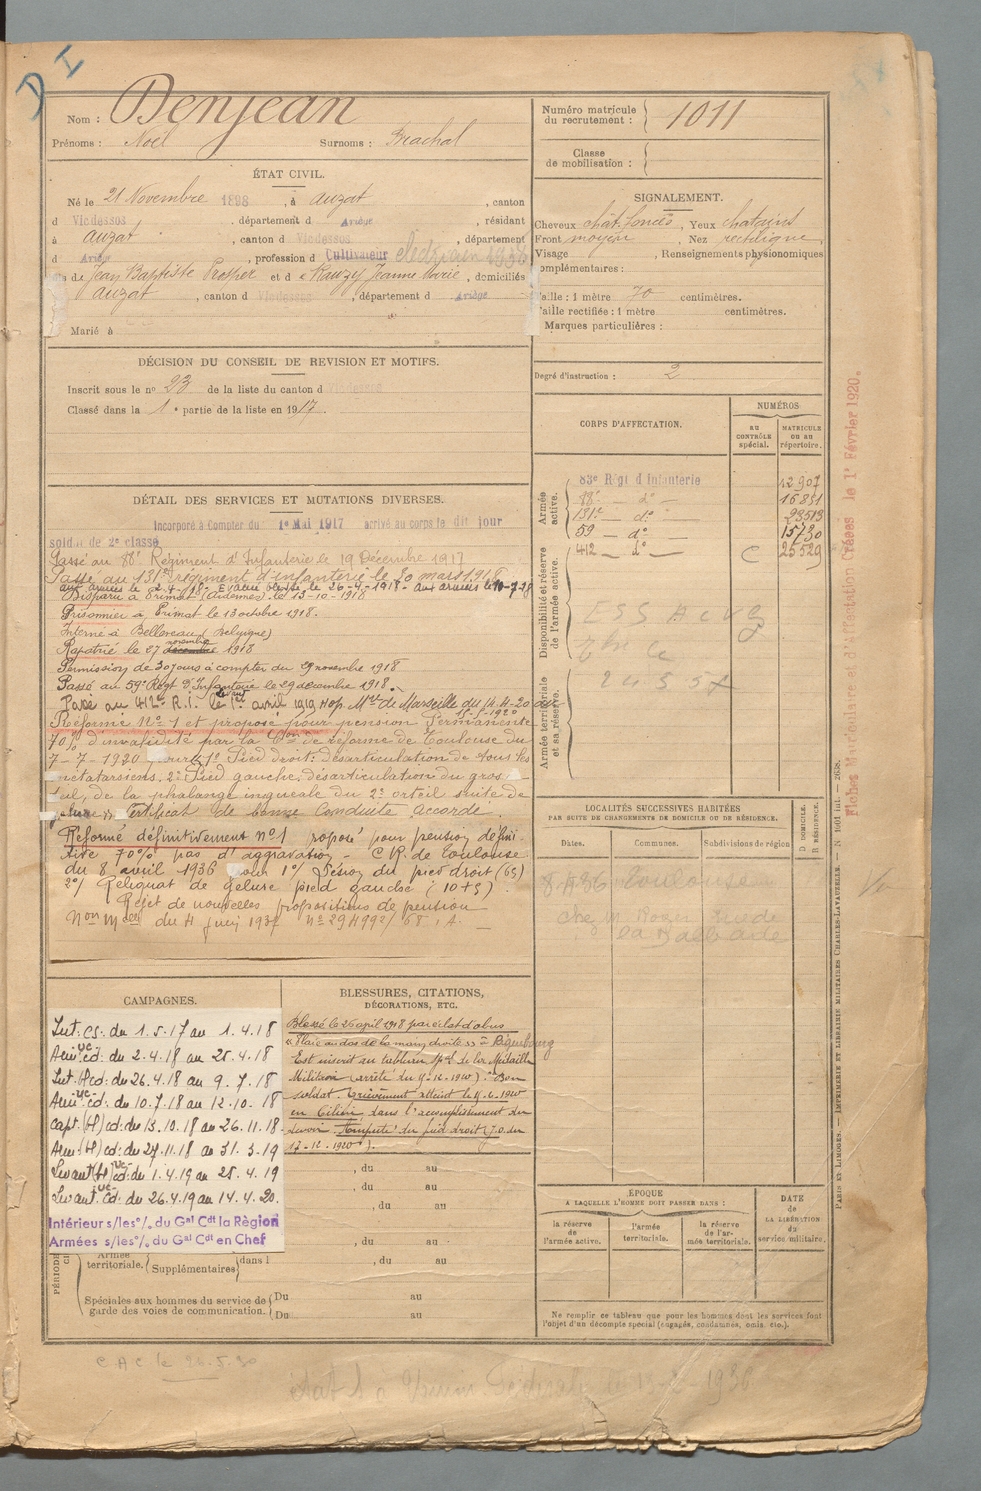 D I
Nom : Denjean
Prénoms : Noël Surnoms : Brachal
ÉTAT CIVIL.
Né le 21 Novembre 1898, à Auzat, canton
d Vicdessos, département d Ariège, résidant
à Auzat, canton d Vicdessos, département
d Ariège, profession d Cultivateur électricien
de Jean Baptiste Prosper et d e Rauzy Jeanne Marie, domiciliés
Auzat, canton d Vicdessos, département d Ariège
Marié à
DÉCISION DU CONSEIL DE REVISION ET MOTIFS.
Inscrit sous le no 23 de la liste du canton d Vicdessos
Classé dans la 1e partie de la liste en 1917.
DÉTAIL DES SERVICES ET MUTATIONS DIVERSES.
Incorporé à Compter du 1e Mai 1917 arrivé au corps le dit jour
soldat de 2e classe
Passé au 88e Régiment d'Infanterie le 19 Décembre 1917
Passé au 131e régiment d'infanterie le 20 mars 1918
aux armées le 2-4-18. Evacué blessé le 26-4-1918 - aux armées le 10-7-18
Disparu à Primat (Ardennes) le 13-10-1918
Prisonnier à Primat le 13 octobre 1918.
Interné à Belloreau (Belgique)
Rapatrié le 27 novembre 1918
Permission de 30 jours à compter du 29 novembre 1918
Passé au 59e Régt d'Infanterie le 29 décembre 1918.
Passé au 412e R.I. Levant le 1er avril 1919 Hop. Mre de Marseille du 14-4-20 au
Réforme No 1 et proposé pour pension Permanente
70% d'invalidité par la Con de réforme de Toulouse du
7-7-1920 pour 1o Pied droit : désarticulation de tous les
métatarsiens. 2o Pied gauche, désarticulation du gros
de la phalange ingueale du 2e orteil suite de
gelure » Certificat de bonne Conduite accordé.
Réformé définitivement no 1 proposé pour pension défini-
tive 70% pas d'aggravation - C.R. de Toulouse
du 8 avril 1936 pour 1o/ Lésion du pied droit (65)
2o/ Reliquat de gelure pied gauche : 10+5)
Rejet de nouvelles propositions de pension
du 4 juin 1937 No 294992/68.A.
CAMPAGNES.
Int. cs. du 1.5.17 au 1.4.18
Arm. cd. du 2.4.18 au 25.4.18
Int. cd. du 26.4.18 au 9.7.18
Arm. cd. du 10.7.18 au 12.10.18
Capt. (H) cd. du 13.10.18 au 26.11.18
Arm. (H) cd. du 27.11.18 au 31.3.19
Levant (H) cd. du 1.4.19 au 25.4.19
Levant cd. du 26.4.19 au 14.4.20.
Intérieur s/les o/. du Gal Cdt la Région
Armées s/les o/. du Gal Cdt en Chef
Armée
territoriale. (Supplémentaires) dans l
Spéciales aux hommes du service de
garde des voies de communication.
Du au
Du au
BLESSURES, CITATIONS,
DÉCORATIONS, ETC.
Blessé le 25 april 1918 par éclat d'obus
« Plaie au dos de la main droite » à
Est inscrit au tableau spal de la Médaille
Militaire (arrêté du 4-12-1920) : Bon
soldat. Grièvement atteint le 4-6-1920
en Cilicie dans l'accomplissement du
devoir. Amputé du pied droit (J.O. du
17-12-1920).
, du au
, du au
, du au
, du au
, du au
Numéro matricule
du recrutement : 1011
Classe
de mobilisation :
SIGNALEMENT.
Cheveux chât. foncés, Yeux chatains
Front moyen, Nez rectiligne
Visage , Renseignements physionomiques
complémentaires :
Taille : 1 mètre 70 centimètres.
Taille rectifiée : 1 mètre centimètres.
Marques particulières :
Degré d'instruction : 2
CORPS D'AFFECTATION.
NUMÉROS
AU CONTRÔLE spécial.
MATRICULE OU AU répertoire.
Armée active.
83e Régt d'Infanterie 12907
88e — do — 16851
131e — do — 93513
59 — do — 15730
412 — do — C 25529
Disponibilité et réserve de l'armée active.
Armée territoriale et sa réserve.
LOCALITÉS SUCCESSIVES HABITÉES
PAR SUITE DE CHANGEMENTS DE DOMICILE OU DE RÉSIDENCE.
D. DOMICILE.
R. RÉSIDENCE.
Dates. Communes. Subdivisions de région
8-4-36 Toulouse
chez M. Roger rue de
la Dalbade
ÉPOQUE
A LAQUELLE L'HOMME DOIT PASSER DANS :
la réserve de l'armée active.
l'armée territoriale.
la réserve de l'armée territoriale.
DATE
de
LA LIBÉRATION
du
service militaire.
Ne remplir ce tableau que pour les hommes dont les services font
l'objet d'un décompte spécial (engagés, condamnés, omis, etc.).
Fiches Matriculaire et d'Affectation Créées le 1r Février 1920.
PARIS ET LIMOGES. — IMPRIMERIE ET LIBRAIRIE MILITAIRES CHARLES-LAVAUZELLE.
C A C le 20.5.30